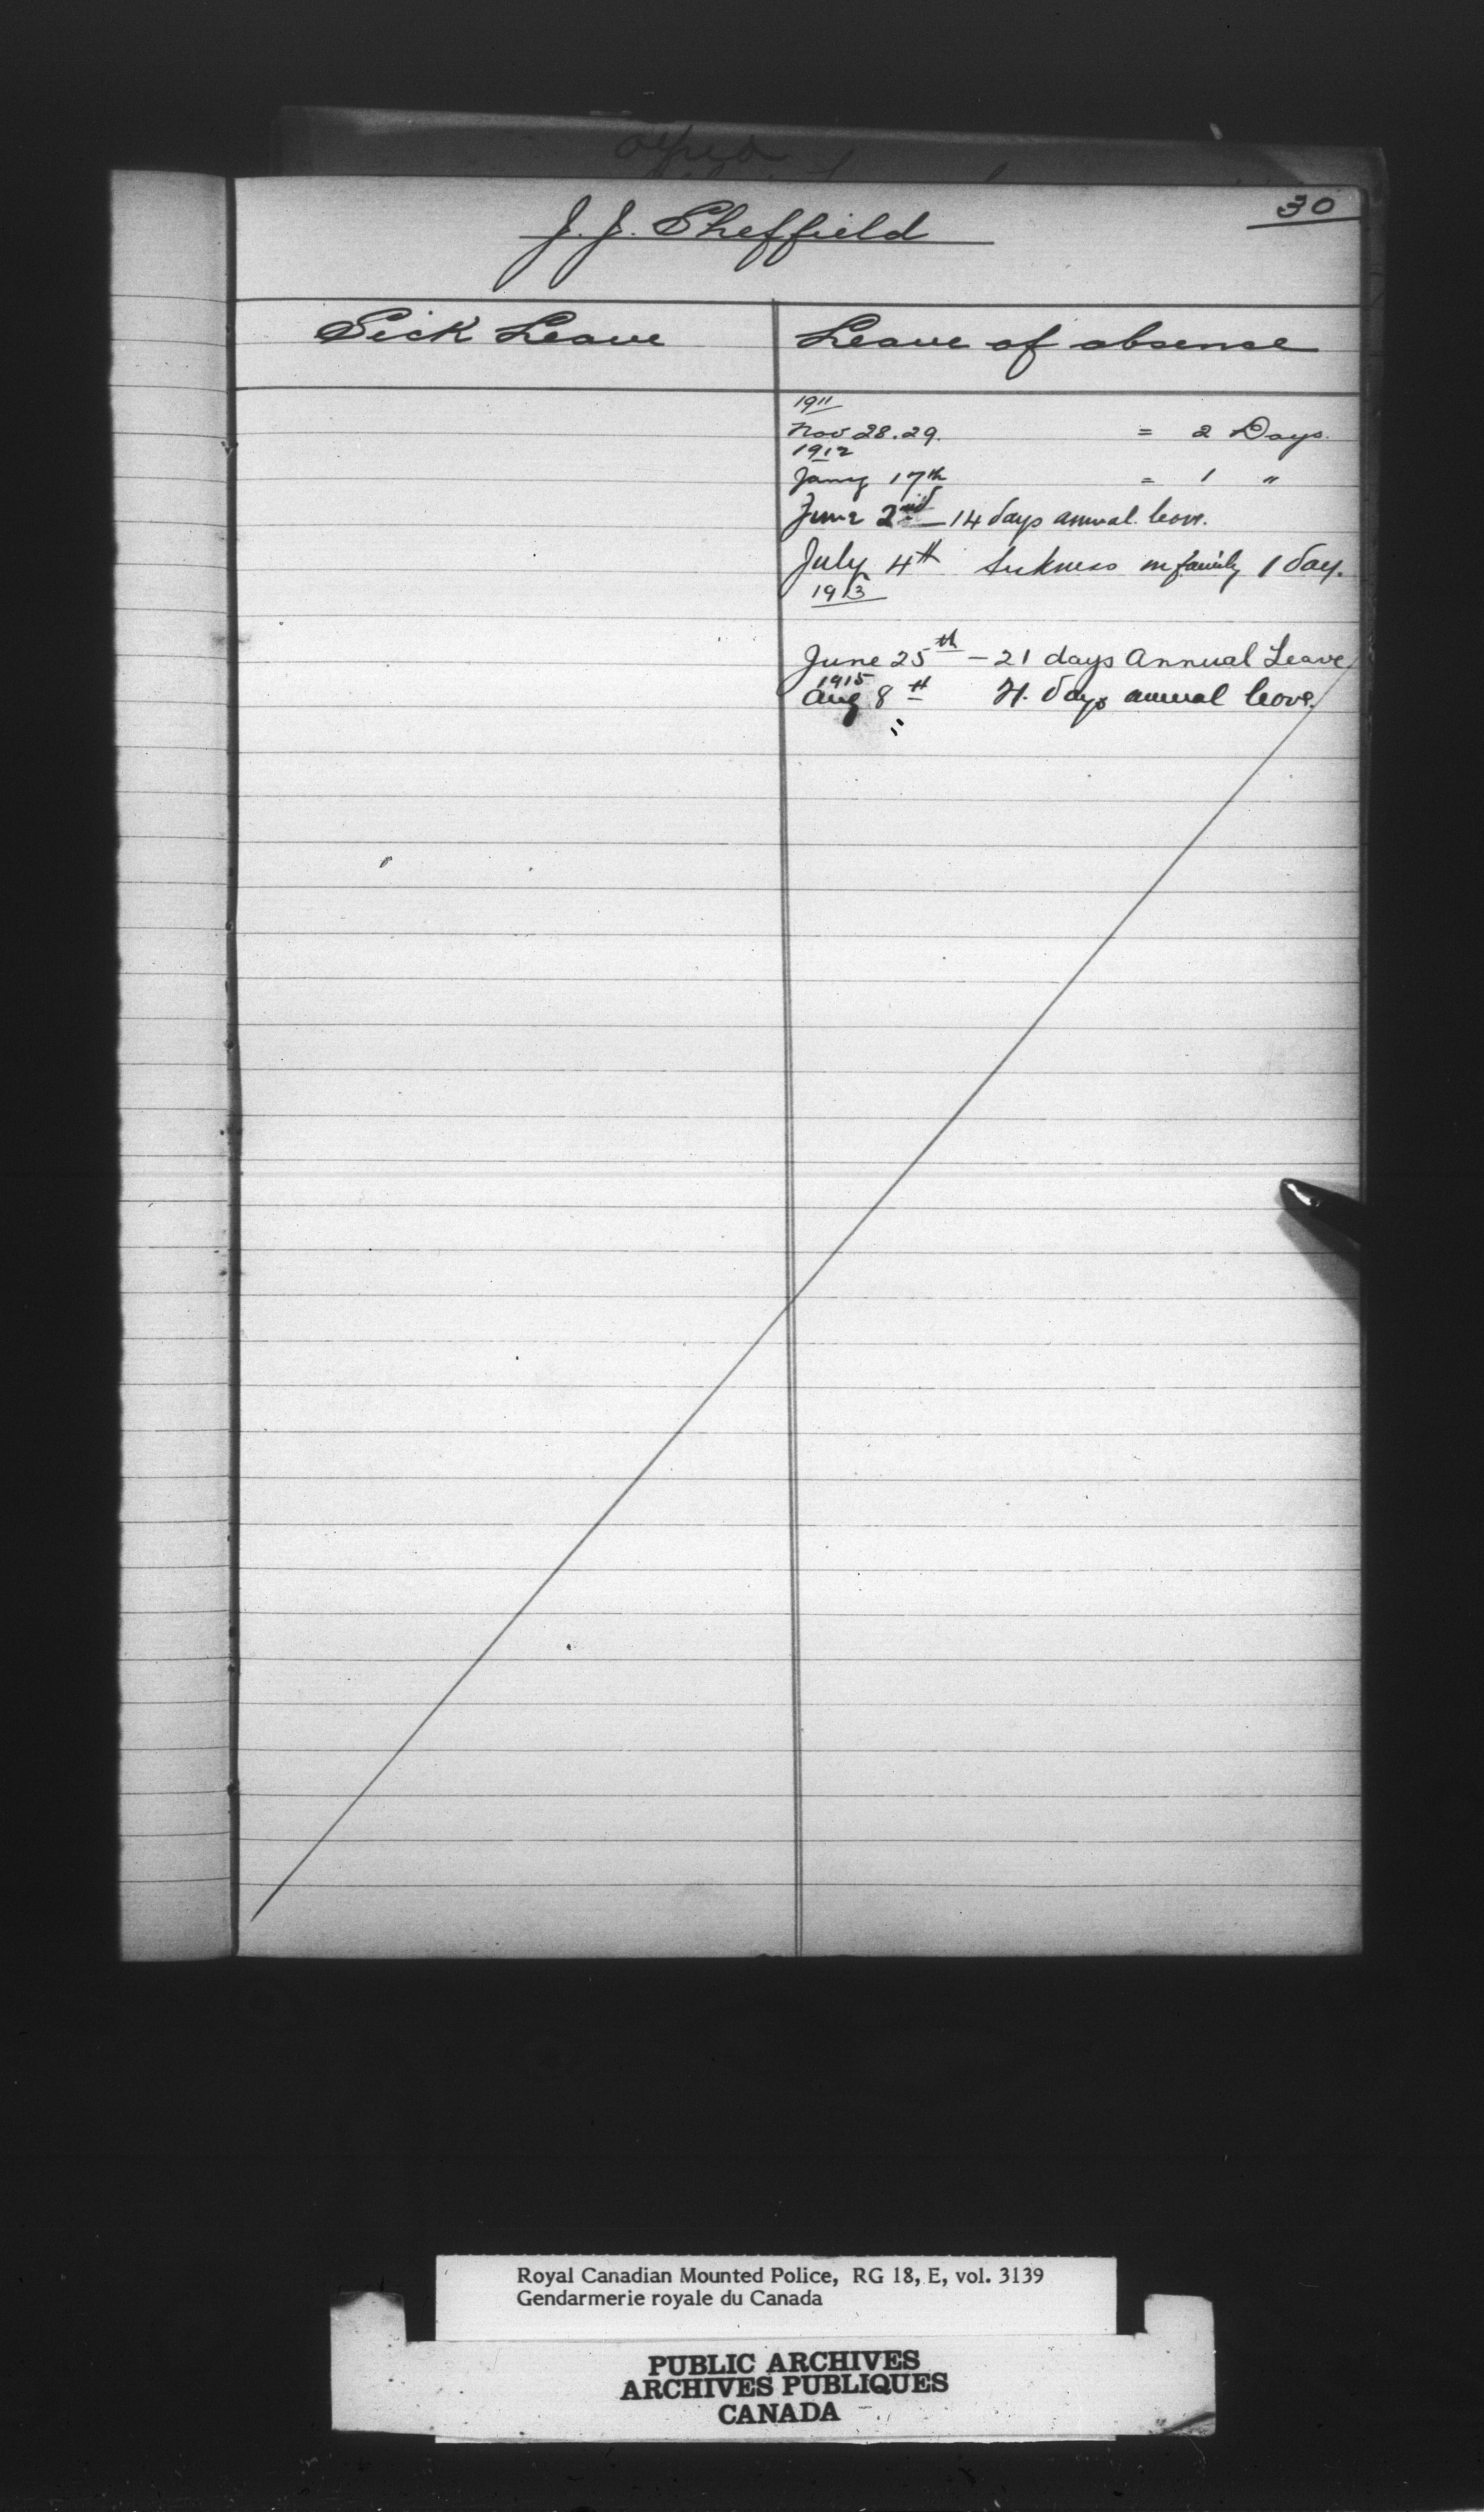 30
J. J. Sheffield
Sick Leave
Leave of absence
1911
Nov 28.29. = 2 Days.
1912
Jany 17th = 1 "
June 2nd 14 days annual leave.
July 4th Sickness in family 1 day.
1913
June 25th - 21 days Annual Leave
1915
Aug 8th days annual leave.
"
Royal Canadian Mounted Police, RG 18, E, vol. 3139
Gendarmerie royale du Canada
PUBLIC ARCHIVES
ARCHIVES PUBLIQUES
CANADA